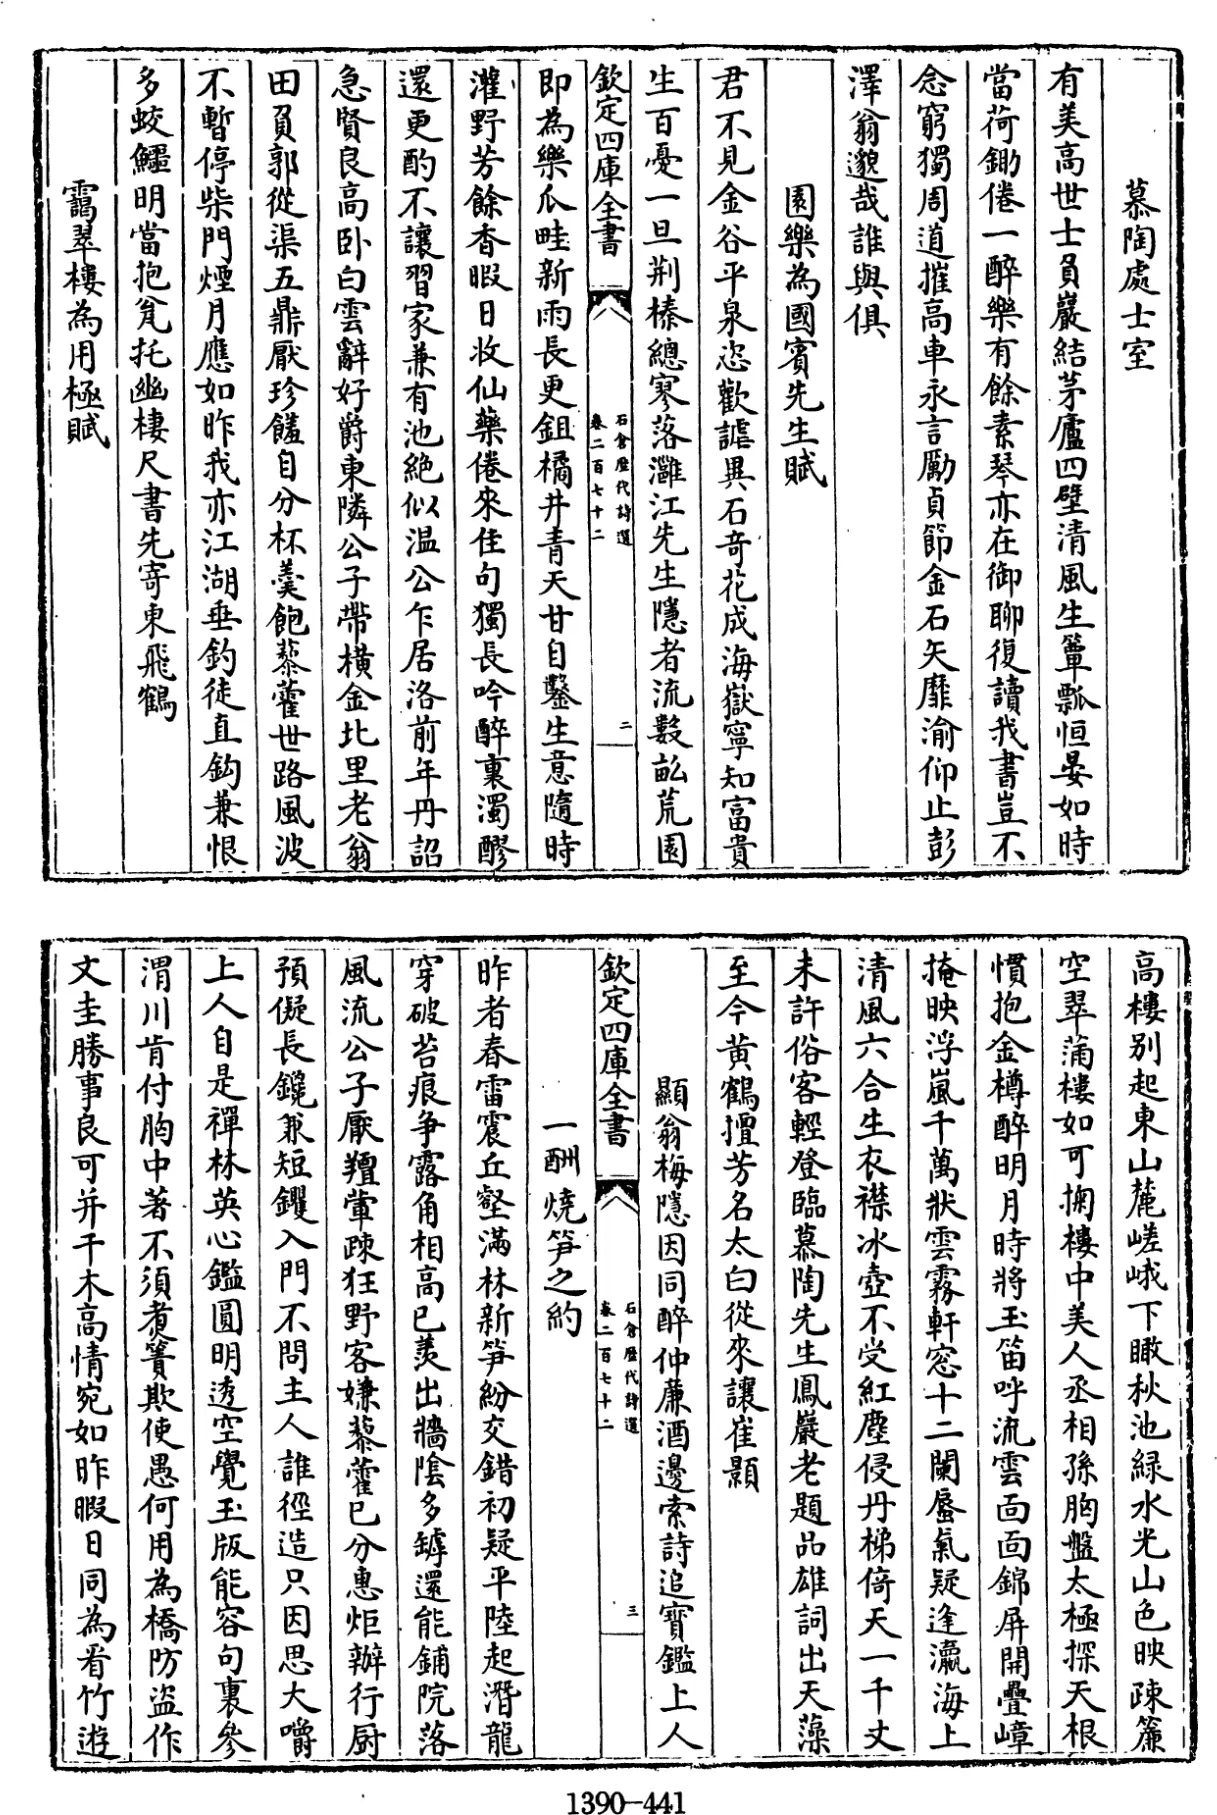 慕陶處士室
有美高世士負巖結茅廬四壁清風生簞瓢恒晏如時
當荷鋤倦一醉樂有餘素琴亦在御聊復讀我書豈不
念窮獨周道摧高車永言勵貞節金石矢靡渝仰止彭
澤翁邈哉誰與俱
園樂為國賓先生賦
君不見金谷平泉恣歡謔異石奇花成海嶽寧知富貴
生百憂一旦荆榛總寥落灉江先生隱者流數畝荒園
欽定四庫全書
石倉歴代詩選
卷二百七十二
二
即為樂瓜畦新雨長更鉏橘井青天甘自鑿生意隨時
灌野芳餘杳暇日收仙藥倦來佳句獨長吟醉裏濁醪
還更酌不讓習家兼有池絶似温公乍居洛前年丹詔
急賢良高卧白雲辭好爵東隣公子帶横金北里老翁
田負郭從渠五鼎厭珍饈自分杯羮飽藜藿世路風波
不暫停柴門煙月應如昨我亦江湖垂釣徒直鈎兼恨
多蛟鱷明當抱瓮托幽棲尺書先寄東飛鶴
靄翠樓為用極賦
高樓别起東山麓嵯峨下瞰秋池緑水光山色映疎簾
空翠滿樓如可掬樓中美人丞相孫胸盤太極探天根
慣抱金樽醉明月時將玉笛呼流雲面面錦屏開疊嶂
掩映浮嵐千萬狀雲霧軒窓十二闌蜃氣疑逢瀛海上
清風六合生衣襟冰壺不受紅塵侵丹梯倚天一千丈
未許俗客輕登臨慕陶先生鳳巖老題品雄詞出天藻
至今黄鶴擅芳名太白從來讓崔顥
顯翁梅隱因同醉仲亷酒邊索詩追寳鑑上人
欽定四庫全書
石倉歴代詩選
卷二百七十二
三
一酬燒笋之約
昨者春雷震丘壑滿林新笋紛交錯初疑平陸起潛龍
穿破苔痕争露角相高已羨出牆陰多罅還能鋪院落
風流公子厭羶葷疎狂野客嫌藜藿已分惠炬辦行厨
預儗長鑱兼短钁入門不問主人誰徑造只因思大嚼
上人自是禪林英心鑑圓明透空覺玉版能容句裏參
渭川肯付胸中著不須煮簀欺使愚何用為橋防盗作
文圭勝事良可并干木高情宛如昨暇日同為看竹遊
1390-441